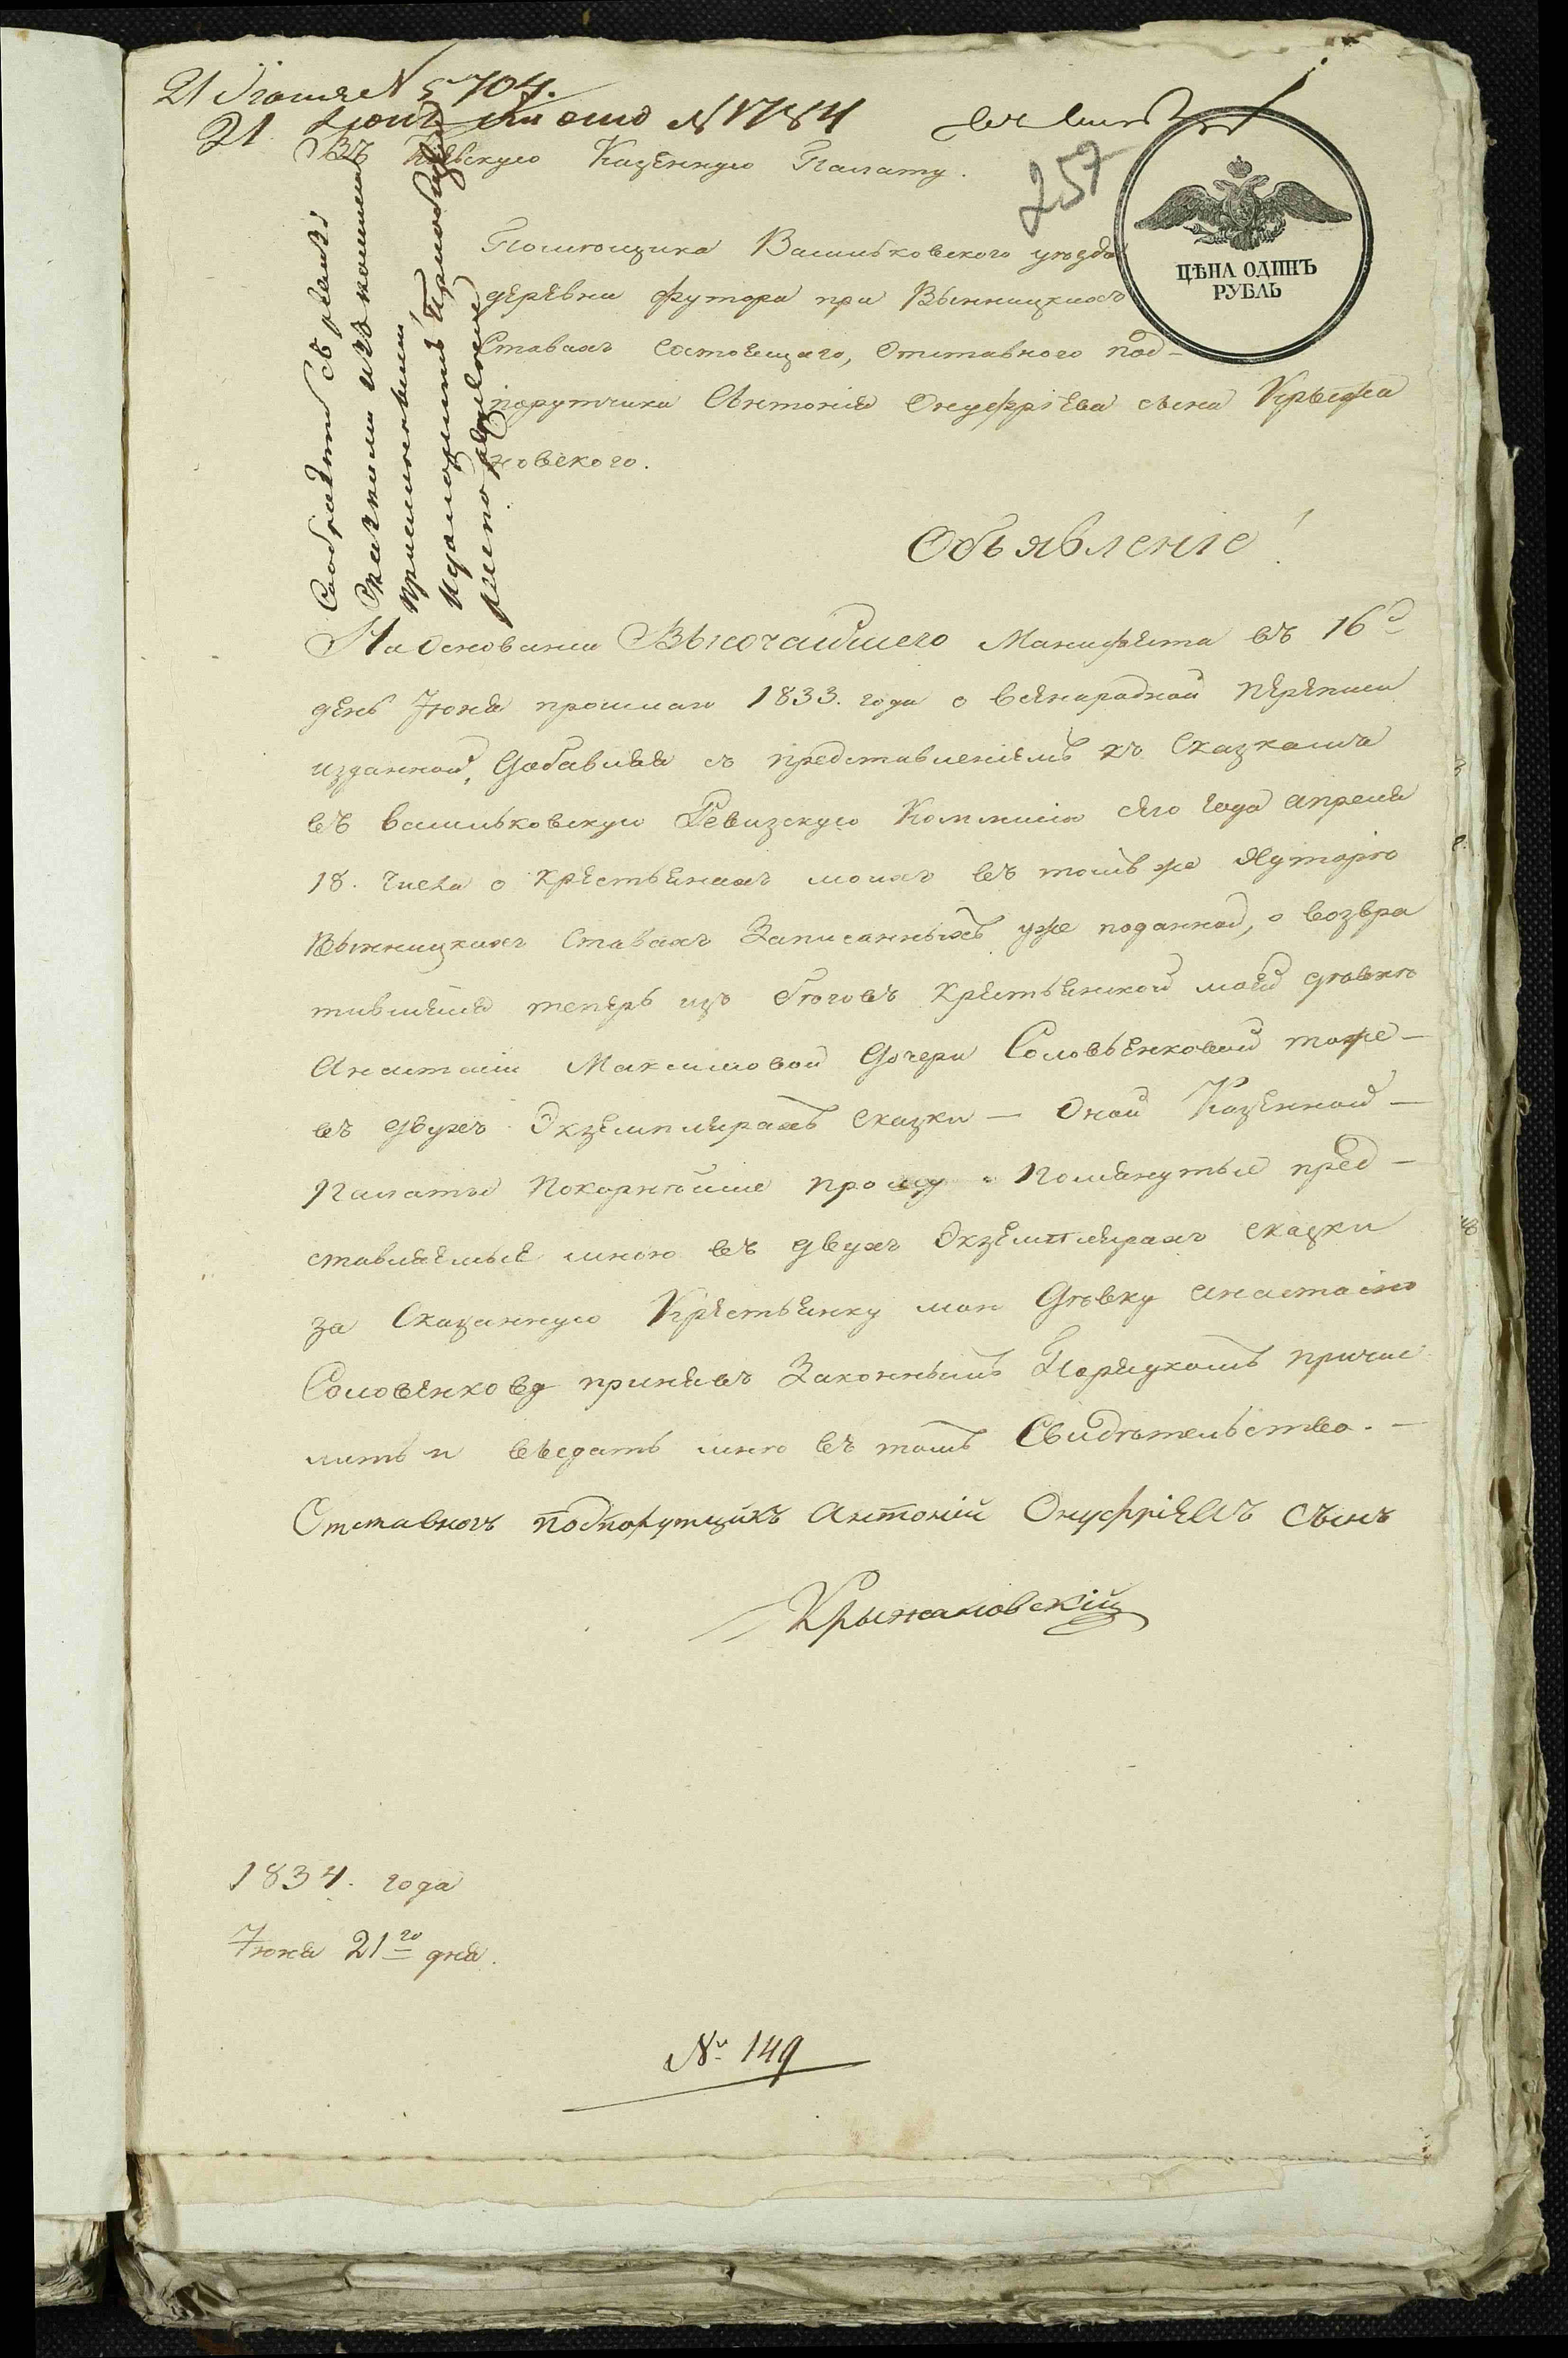 21 Июня № 5704.
21 Июня № 1784
257
ЦѢНА ОДИНЪ
РУБЛЬ
Въ Кіевскую Казенную Палату.
Помѣщика Васильковского уѣзда
деревни Футора при Вынницкихъ
Ставахъ состоящаго, Отставного под-
порутчика Антонія Онуфріева сына Крыжа
новского.
Объявленіе!
На Основании Высочайшего Манифеста въ 16й
день Іюня прошлаго 1833. года о всенародной переписи
изданной, Добавляя съ представленіемъ къ Сказкамъ
въ васильковскую Ревизскую Коммисію сего года апреля
18. числа о крестьянахъ моихъ въ томъ же Хуторѣ
Вынницкихъ Ставахъ Записанныхъ уже поданной, о возвра
тившейся теперь изъ бѣговъ крестьянской моей дѣвкѣ
Анастасіи Максимовой Дочери Соловьенковой тоже —
въ двухъ Экземплярахъ сказки — Оной Казенной —
Палаты Покорнѣйше прошу Помянутые пред —
ставляемые мною въ двухъ Экземплярахъ сказки
за Сказанную Крестьянку мою Дѣвку Анастасію
Соловенкову принявъ Законнымъ Порядкомъ причис
лить и выдать мнѣ въ томъ Свидѣтельство. —
Отставной подпорутщикъ Антоній Онуфріевъ сынъ
Крыжановскій
1834. года
Іюня 21го дня.
№ 149